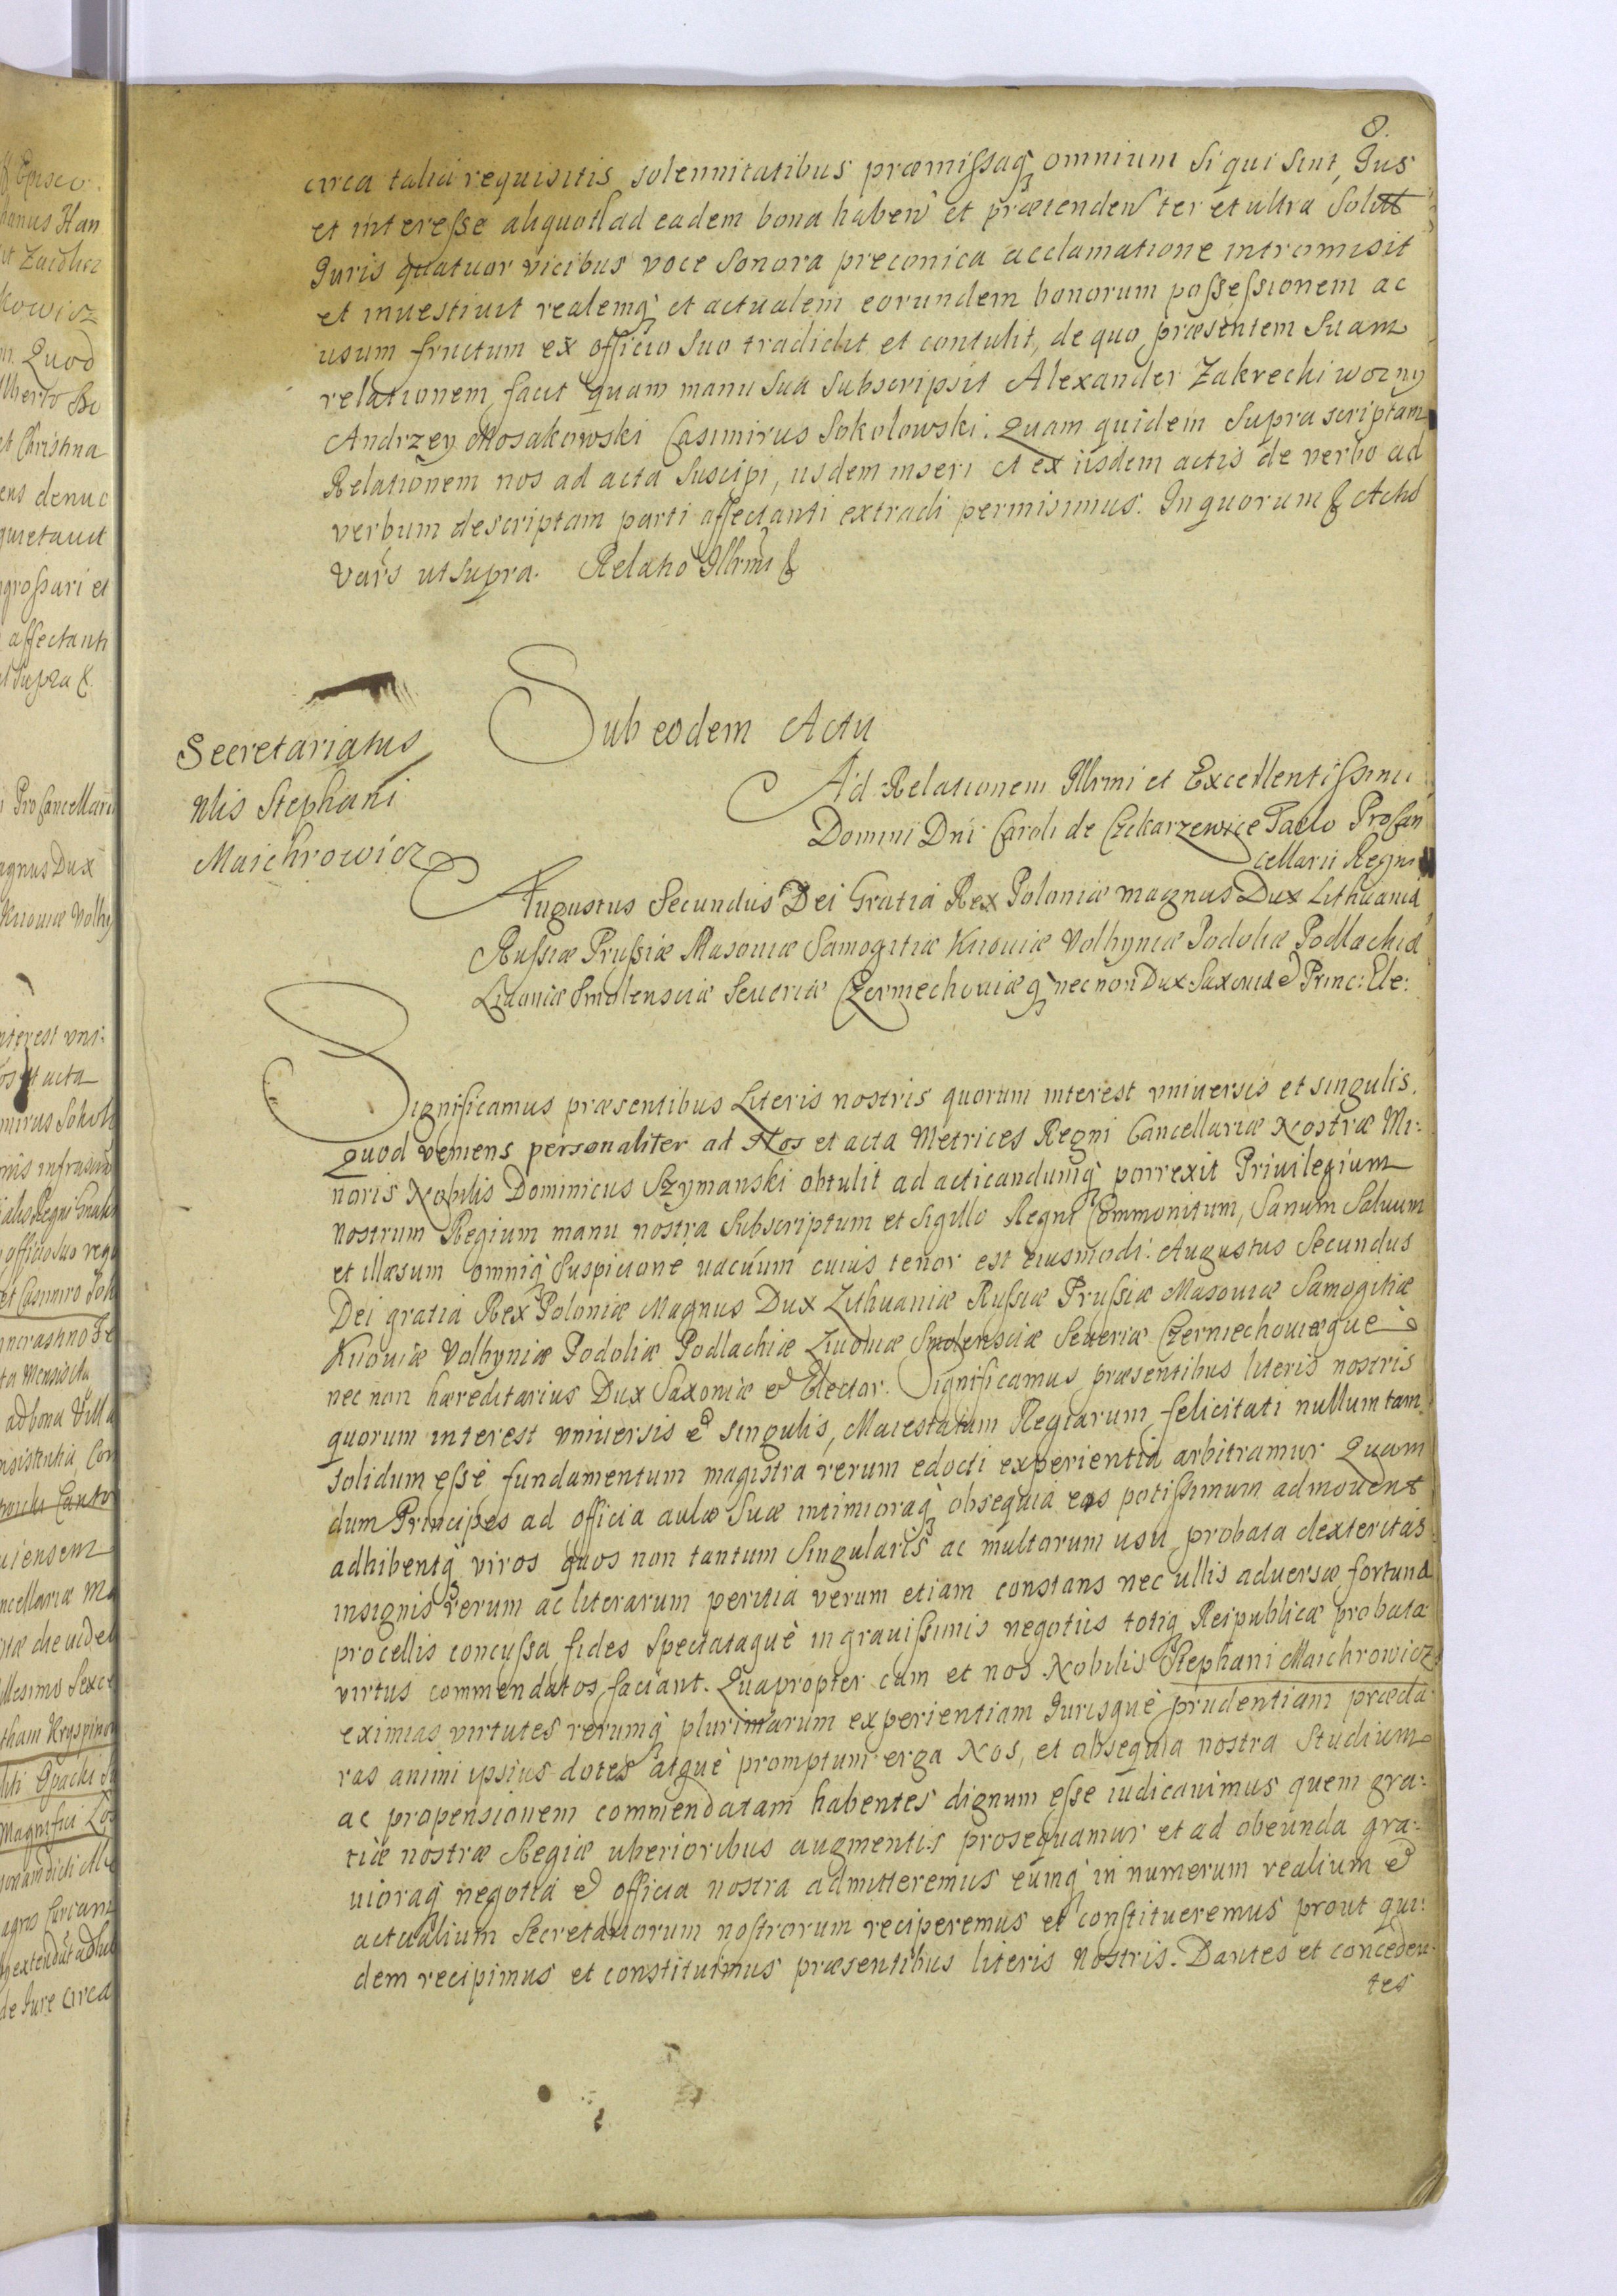 8.
circa talia requisitis solennitatibus præmissaq3 omnium si qui sint, Jus
et interesse aliquod ad eadem bona haben et prætenden ter et ultra solitt
Juris quatuor vicibus voce sonora preconica acclamatione intromisit
et inuestiuit realemq3 et actualem eorundem bonorum possessionem ac
usum fructum ex officio suo tradidit et contulit, de quo præsentem suam
relationem facit quam manu sua subscripsit Alexander Zakrechi wozny
Andrzey Mosakowski Casimirus Sokolowski. Quam quidem supra scriptam
Relationem nos ad acta suscipi, iisdem inseri et ex iisdem actis de verbo ad
verbum descriptam parti affectanti extradi permisimus. In quorum & Acto
Vars ut supra. Relatio Illrmi &
Sub eodem Actu
Secretariatus
Nlis Stephani
Maichrowicz
Ad Relationem Illrmi et Excellentissimi
Domini Dni Caroli de Czekarzewice Tarlo Procan
cellarii Regni
Augustus Secundus Dei Gratia Rex Poloniæ magnus Dux Lithuaniæ
Russiæ Prussiæ Masouiæ Samogitiæ Kiiouiæ Volhyniæ Podoliæ Podlachiæ
Liuoniæ Smolensciæ Seueriæ Czerniechouiæq3 nec non Dux Saxoniæ & Princ: Ele:
Significamus præsentibus Literis nostris quorum interest vniuersis et singulis.
Quod veniens personaliter ad Nos et acta Metrices Regni Cancellariæ Nostræ Mi-
noris Nobilis Dominicus Szymanski obtulit ad acticandumq3 porrexit Priuilegium
nostrum Regium manu nostra subscriptum et sigillo Regni Commonitum, Sanum Saluum
et illæsum omniq3 suspicione uacuum cuius tenor est eiusmodi: Augustus Secundus
Dei gratia Rex Poloniæ Magnus Dux Lithuaniæ Russiæ Prussiæ Masouiæ Samogitiæ
Kiiouiæ Volhyniæ Podoliæ Podlachiæ Liuoniæ Smolensciæ Seueriæ Czerniechouiæque
nec non hæreditarius Dux Saxoniæ & Elector. Significamus præsentibus literis nostris
quorum interest vniuersis & singulis, Maiestatum Regiarum felicitati nullum tam
solidum esse fundamentum magistra rerum edocti experientia arbitramur Quam
dum Principes ad officia aulæ suæ intimioraq3 obsequia eos potissimum admouent
adhibentq3 viros quos non tantum singularis ac multarum usu probata dexteritas
insignis rerum ac literarum peritia verum etiam constans nec ullis aduersæ fortunæ
procellis concussa fides spectataque in grauissimis negotiis totiq Reipublicæ probata
virtus commendatos faciant. Quapropter cum et nos Nobilis Stephani Maichrowicz
eximias virtutes rerumq3 plurimarum experientiam Jurisque prudentiam præcla-
ras animi ipsius dotes atque promptum erga Nos, et obsequia nostra studium
ac propensionem commendatam habentes dignum esse iudicauimus quem gra-
tiæ nostræ Regiæ uberioribus augmentis prosequamur et ad obeunda gra-
uioraq3 negotia & officia nostra admitteremus eumq3 in numerum realium &
actualium Secretariorum nostrorum reciperemus et constitueremus prout qui-
dem recipimus et constituimus præsentibus literis Nostris. Dantes et conceden-
tes